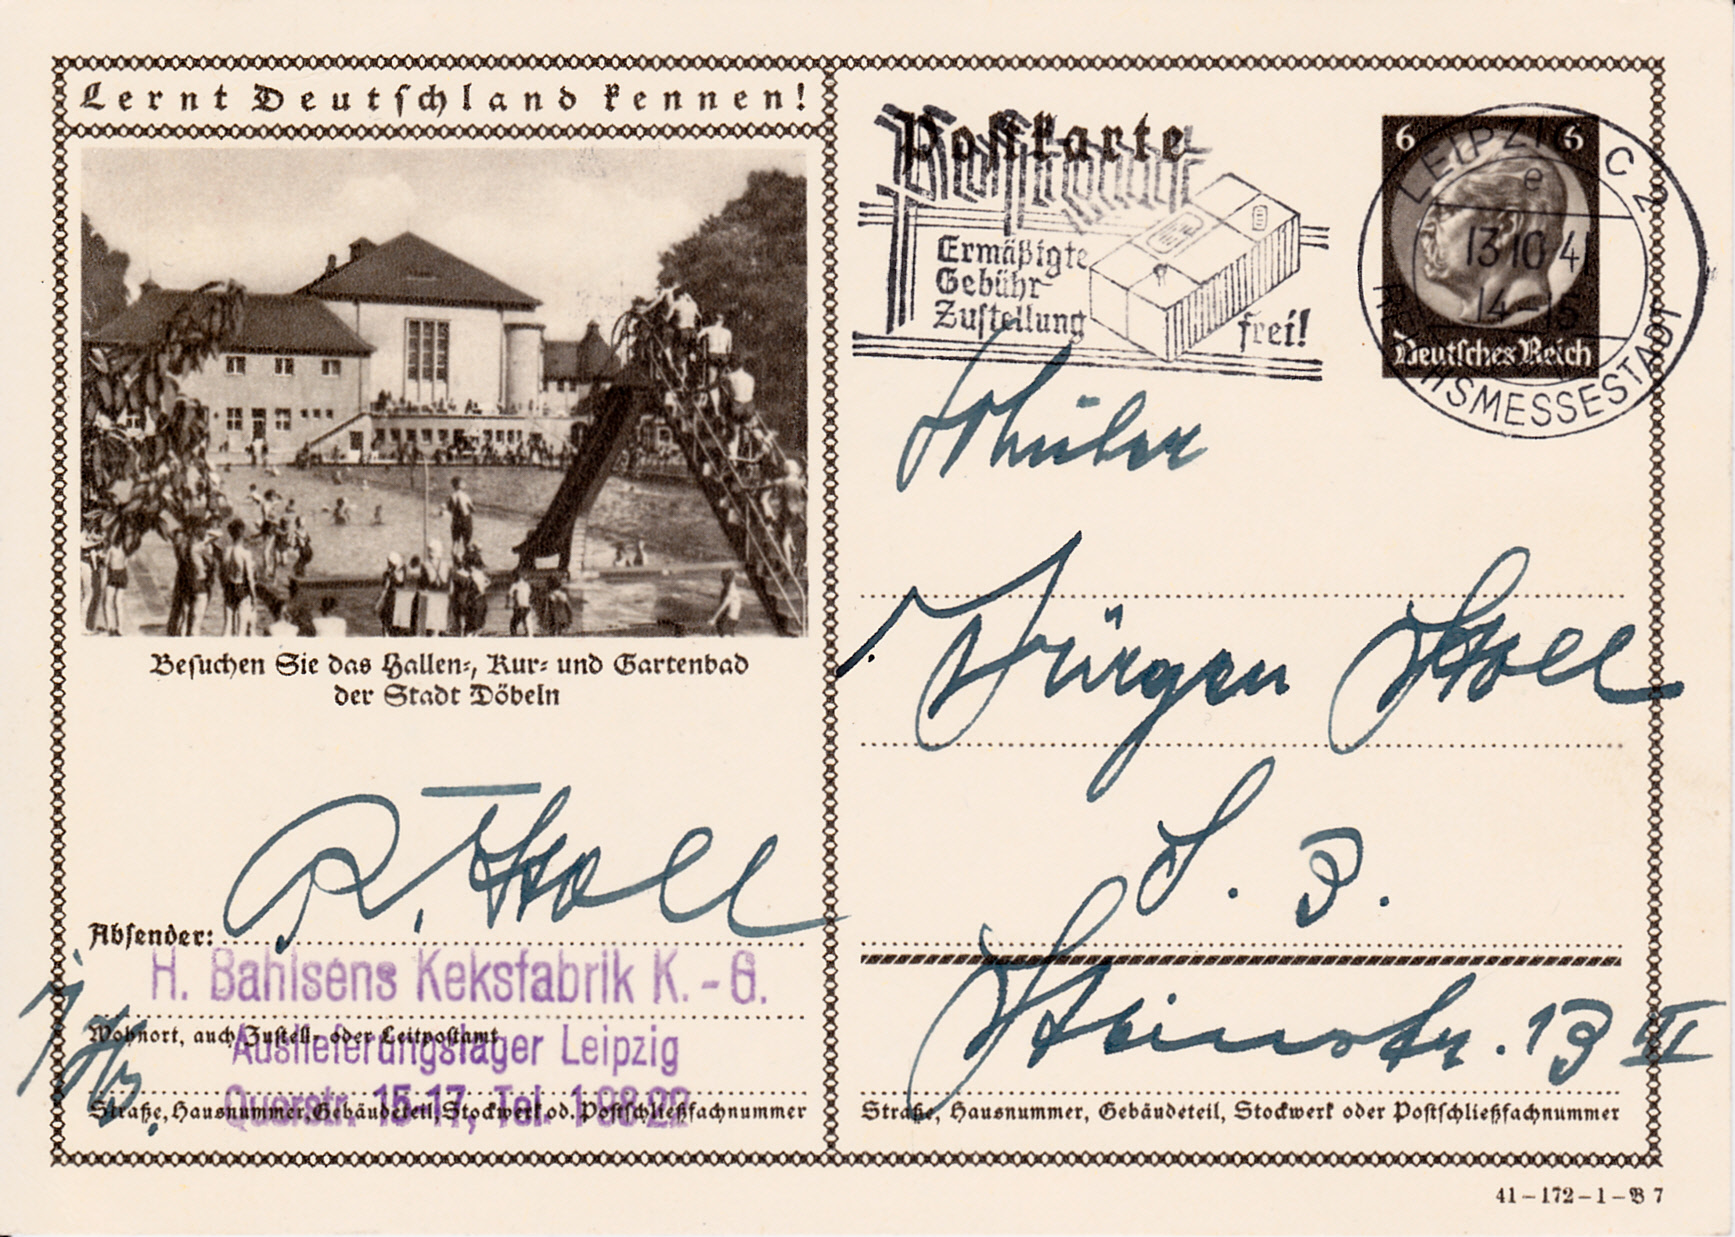 Lernt Deutschland kennen!
Besuchen Sie das Hallen-, Kur- und Gartenbad
der Stadt Döbeln
R. Stoll
Absender:
H. Bahlsens Keksfabrik K.-G.
Wohnort, auch Zustell- oder Leitpostamt
Auslieferungslager Leipzig
Querstr. 15-17, Tel. 1 98 22
Straße, Hausnummer, Gebäudeteil, Stockwerk od. Postschließfachnummer
Postkarte
Ermäßigte
Gebühr
Zustellung
frei!
6 6
Deutsches Reich
LEIPZIG C 2
e
13 10 41
14-15
REICHSMESSESTADT
Schüler
Jürgen Stoll
Steinstr. 13 III
Straße, Hausnummer, Gebäudeteil, Stockwerk oder Postschließfachnummer
41-172-1-B 7